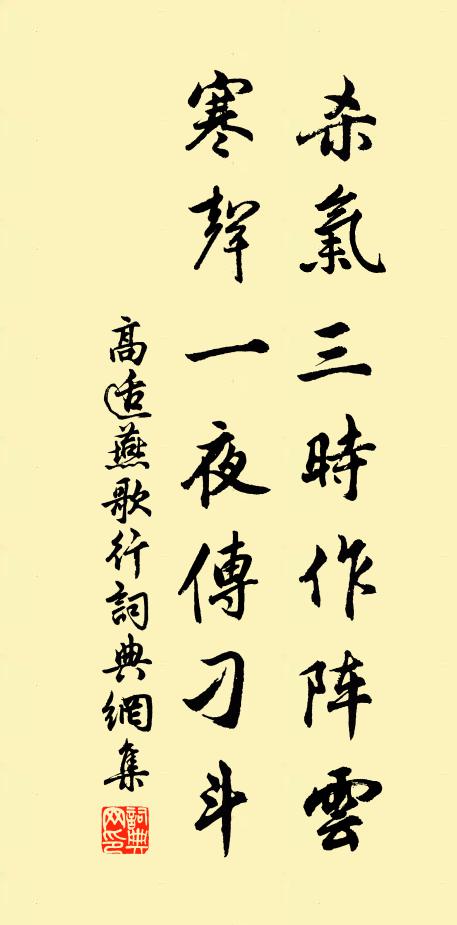 杀氣三時作阵雲
寒聲一夜傳刁斗
高适燕歌行詞典網集
詞典網印